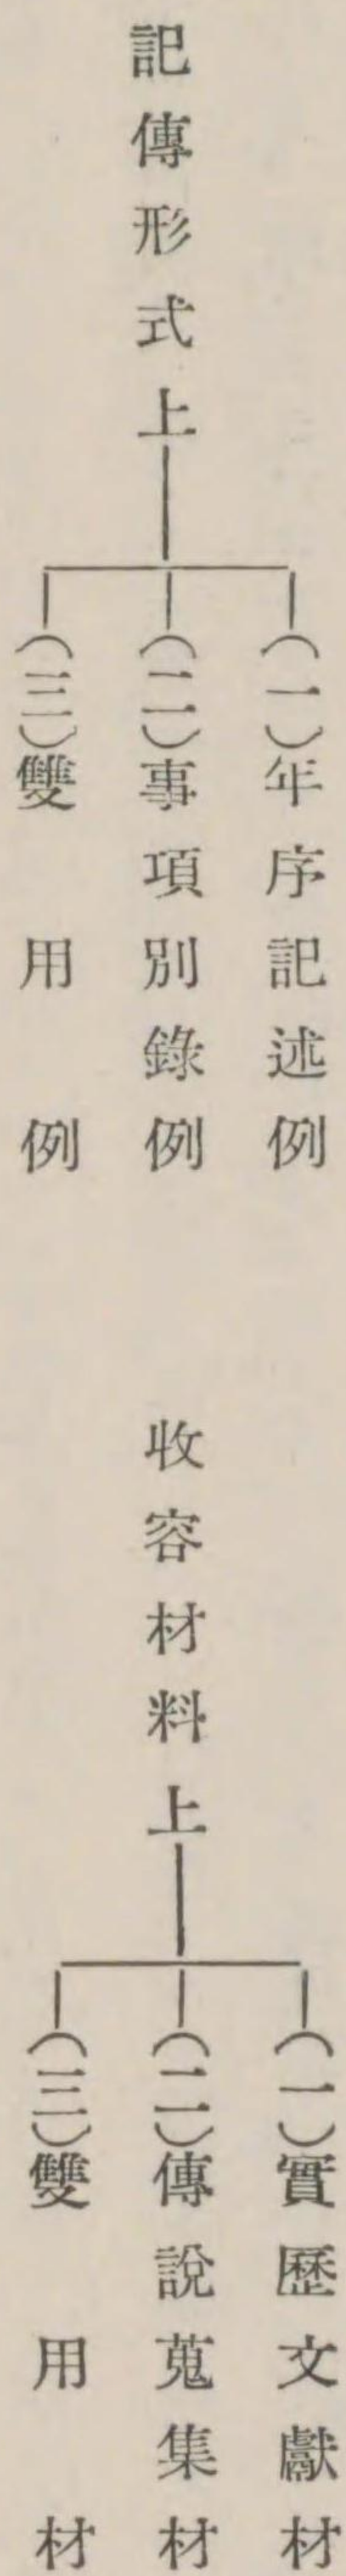 記傳形式上
(一)年序記述例
(二)事項別錄例
(三)雙用例
收容材料上
(一)實歷文獻材
(二)傳說蒐集材
(三)雙用材